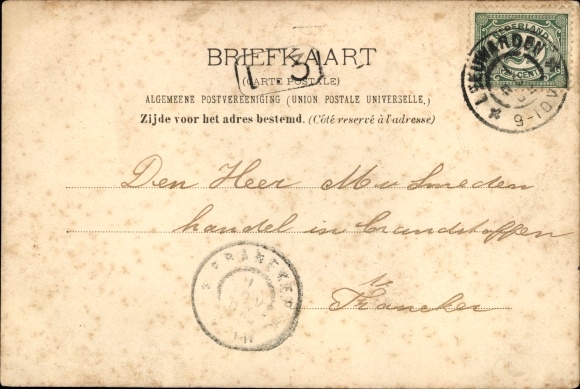 NEDERLAND
CENT
LEEUWARDEN
9-10V
BRIEFKAART
1 3
(CARTE POSTALE)
ALGEMEENE POSTVEREENIGING (UNION POSTALE UNIVERSELLE,)
Zijde voor het adres bestemd. (Côté reservé à l'adresse)
Den Heer M v Smeden
handel in brandstoffen
Franeker
FRANEKER